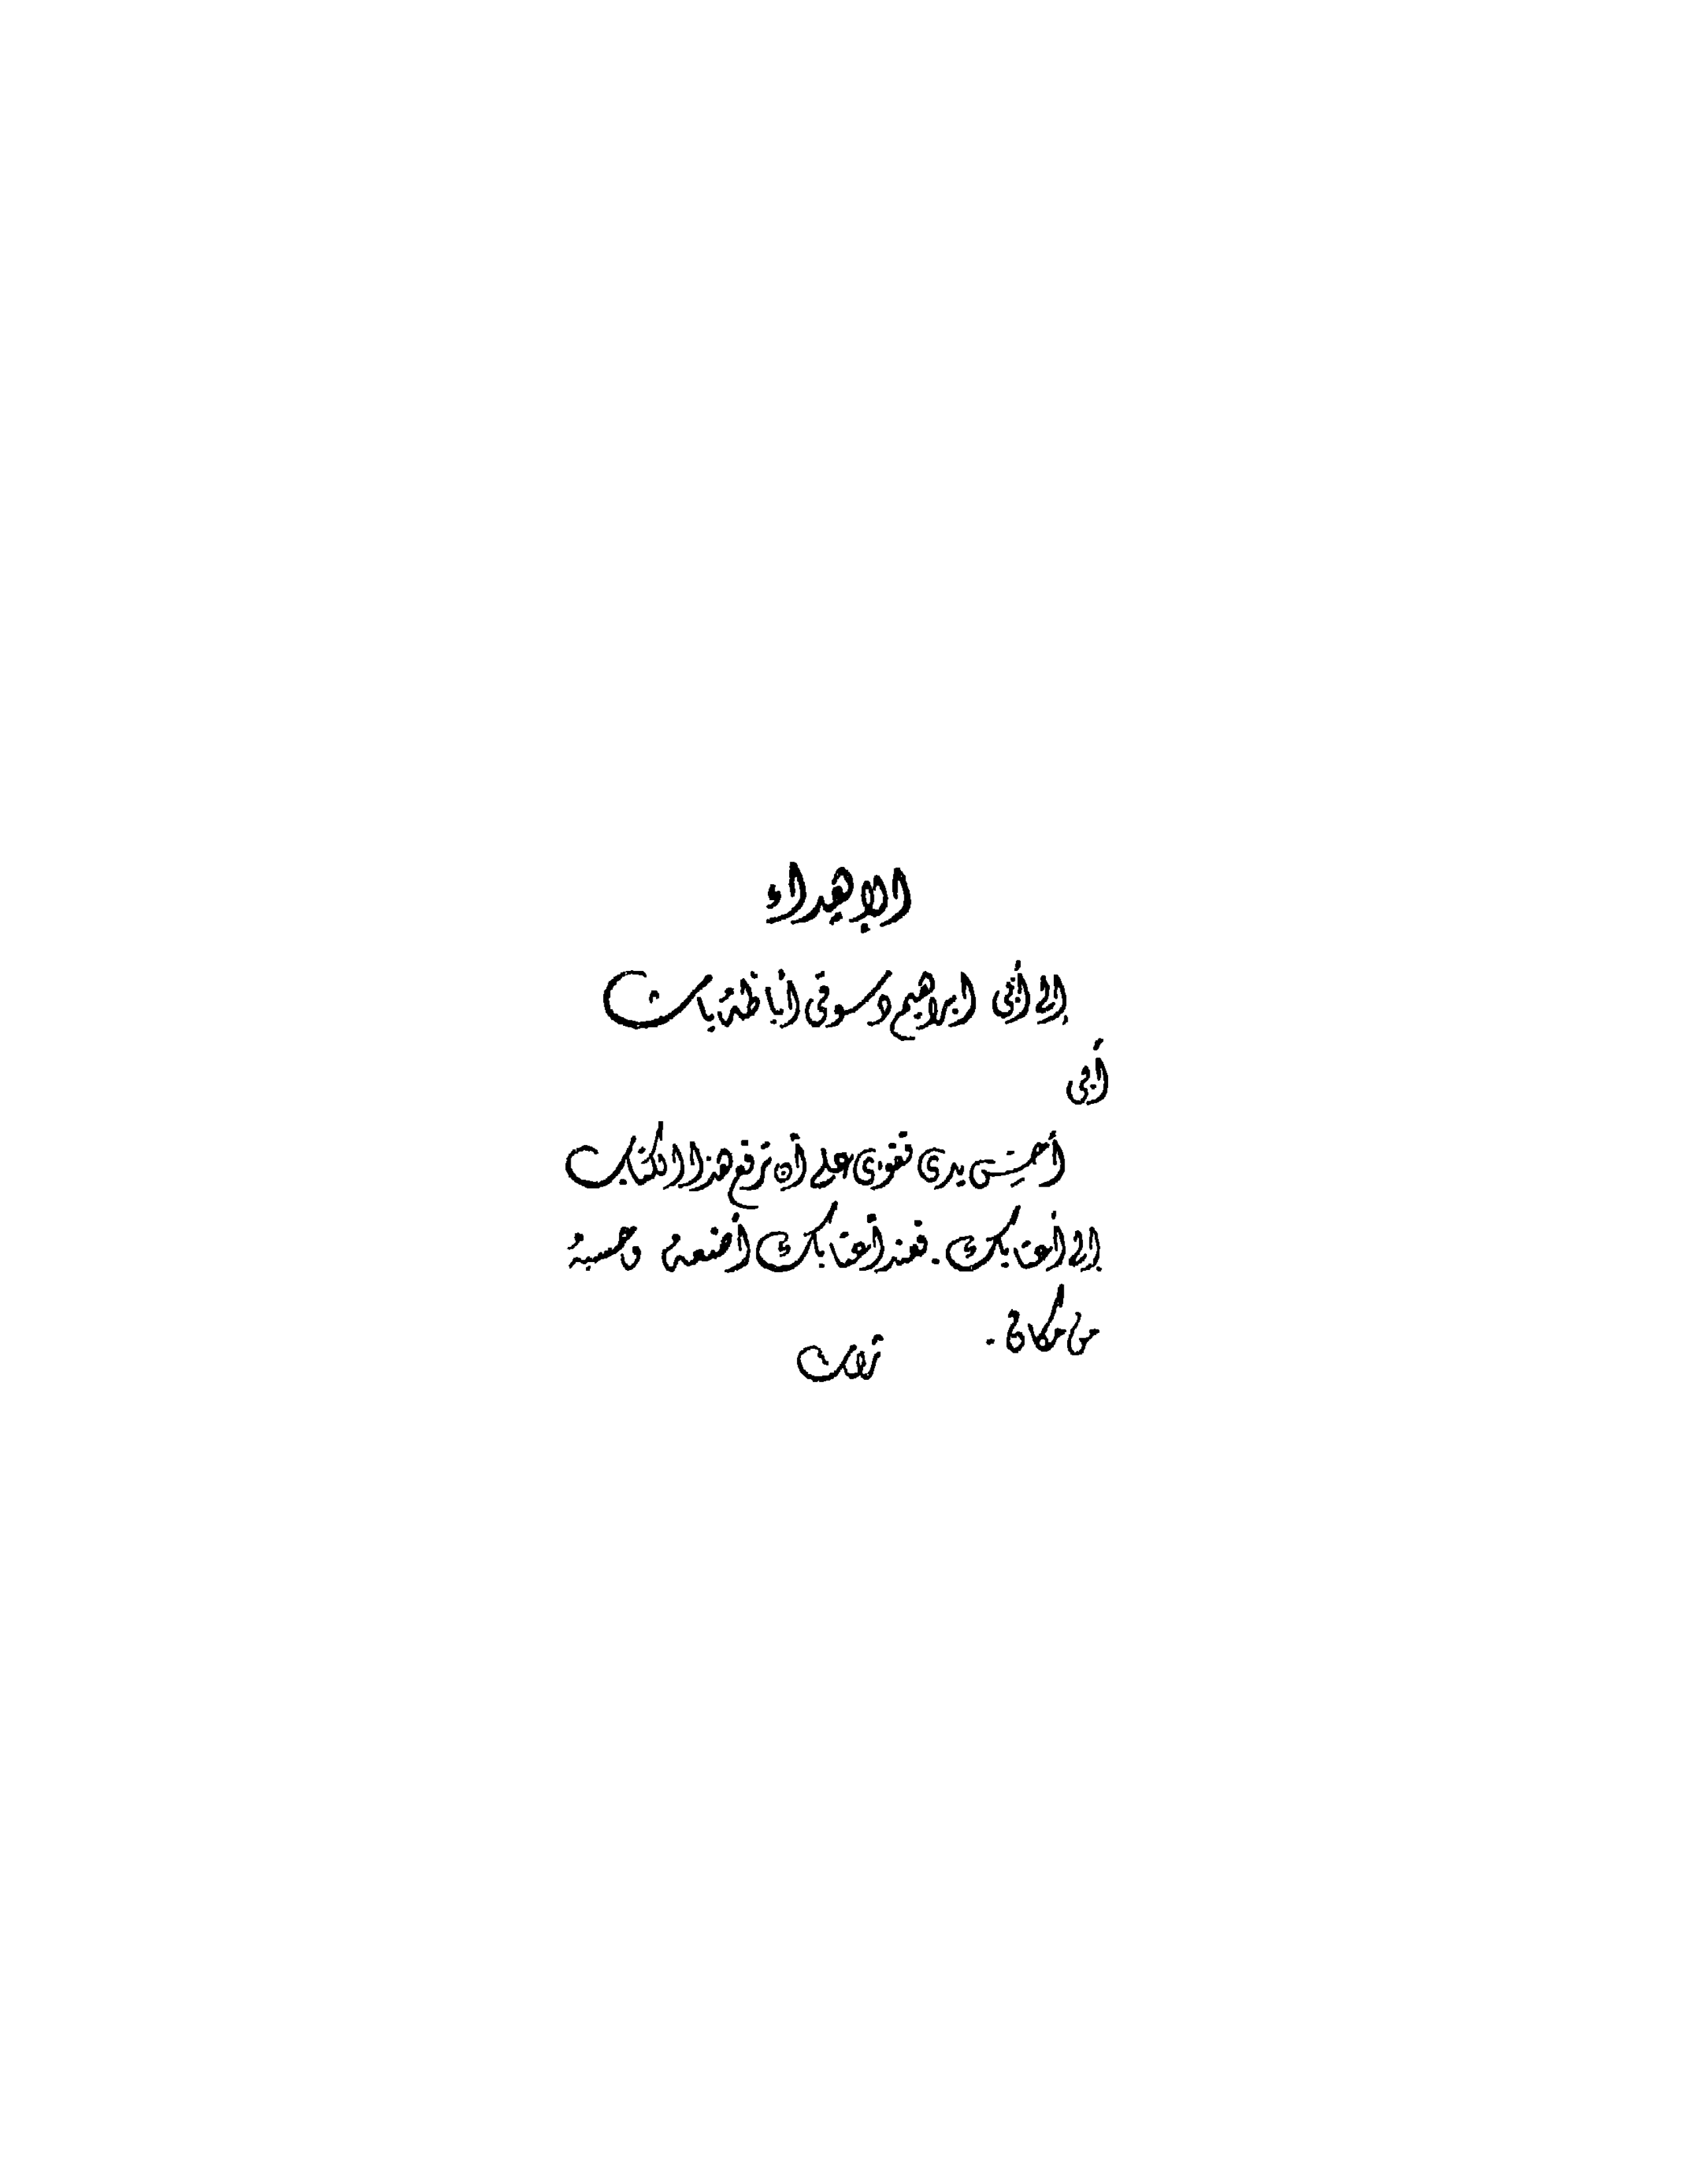 الإهداء
إلى أبى ابراهيم دسوقى أباظة باشا
أبى
يدى فتقوى على أن ترفع هذا الكتاب
إلى أعتابك. فعند أعتابك أضعه وحسبه
من مكان.
ثروت